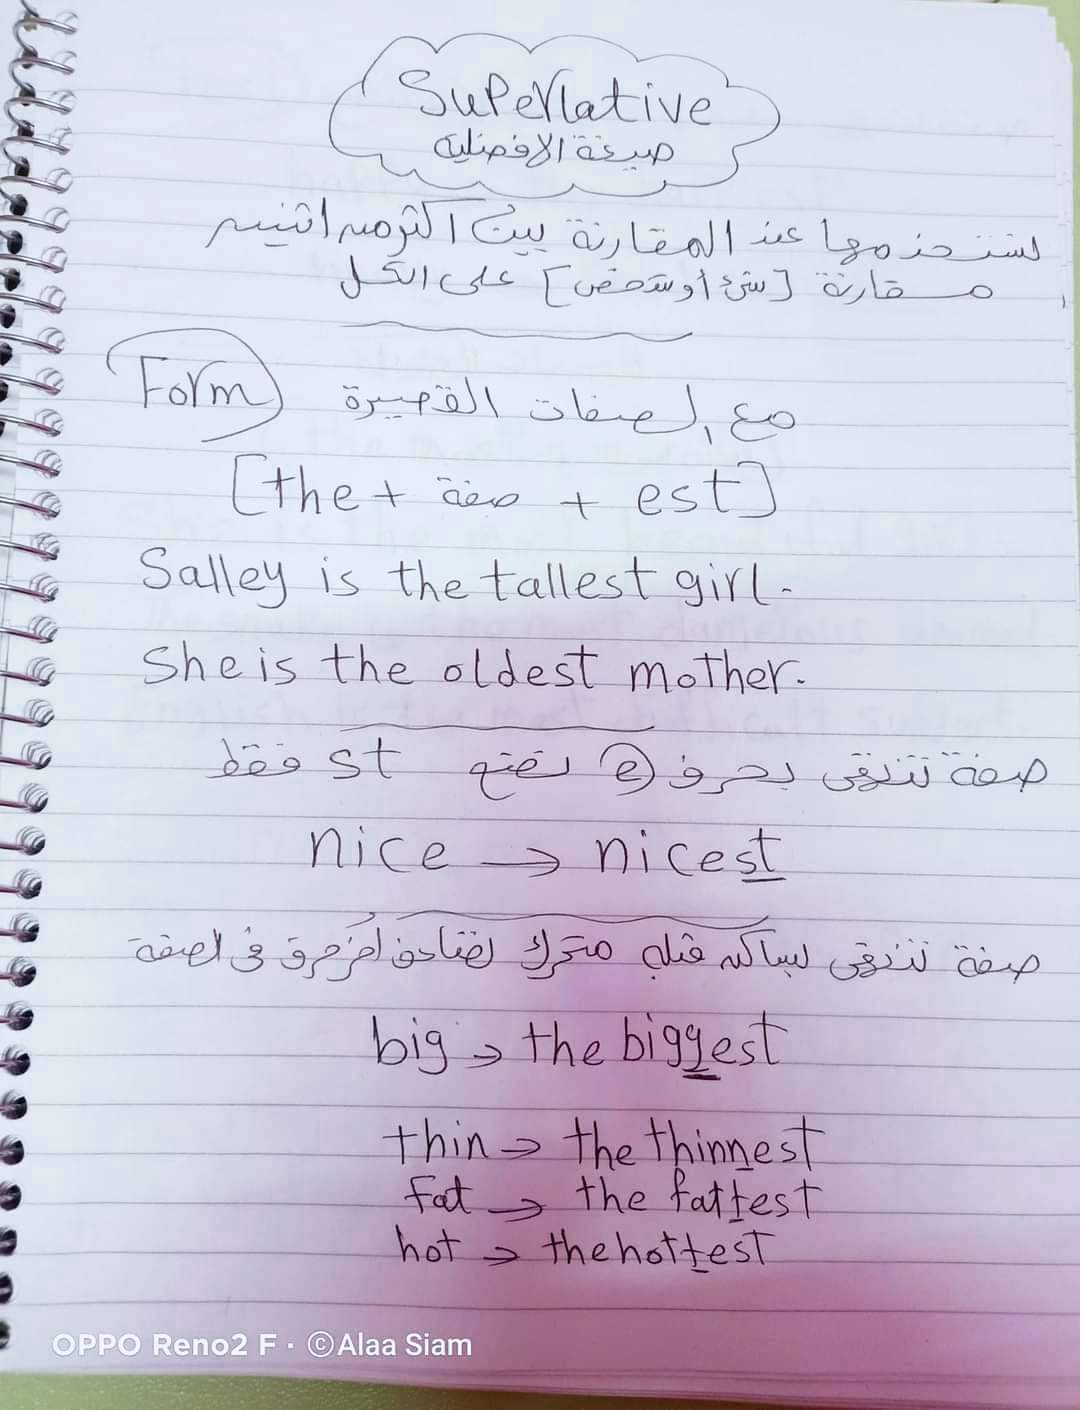 Superlative
صيغة الافضلية
نستخدمها عند المقارنة بين اكثر من اثنين
مقارنة [شئ أو شخص] على الكل
Form مع الصفات القصيرة
[the + صفة + est]
Salley is the tallest girl.
She is the oldest mother.
صفة تنتهى بحرف e نضع st فقط
nice → nicest
صفة تنتهى بساكن قبله متحرك نضاعف اخر حرف فى الصفة
big → the biggest
thin → the thinnest
fat → the fattest
hot → the hottest
OPPO Reno2 F · ©Alaa Siam